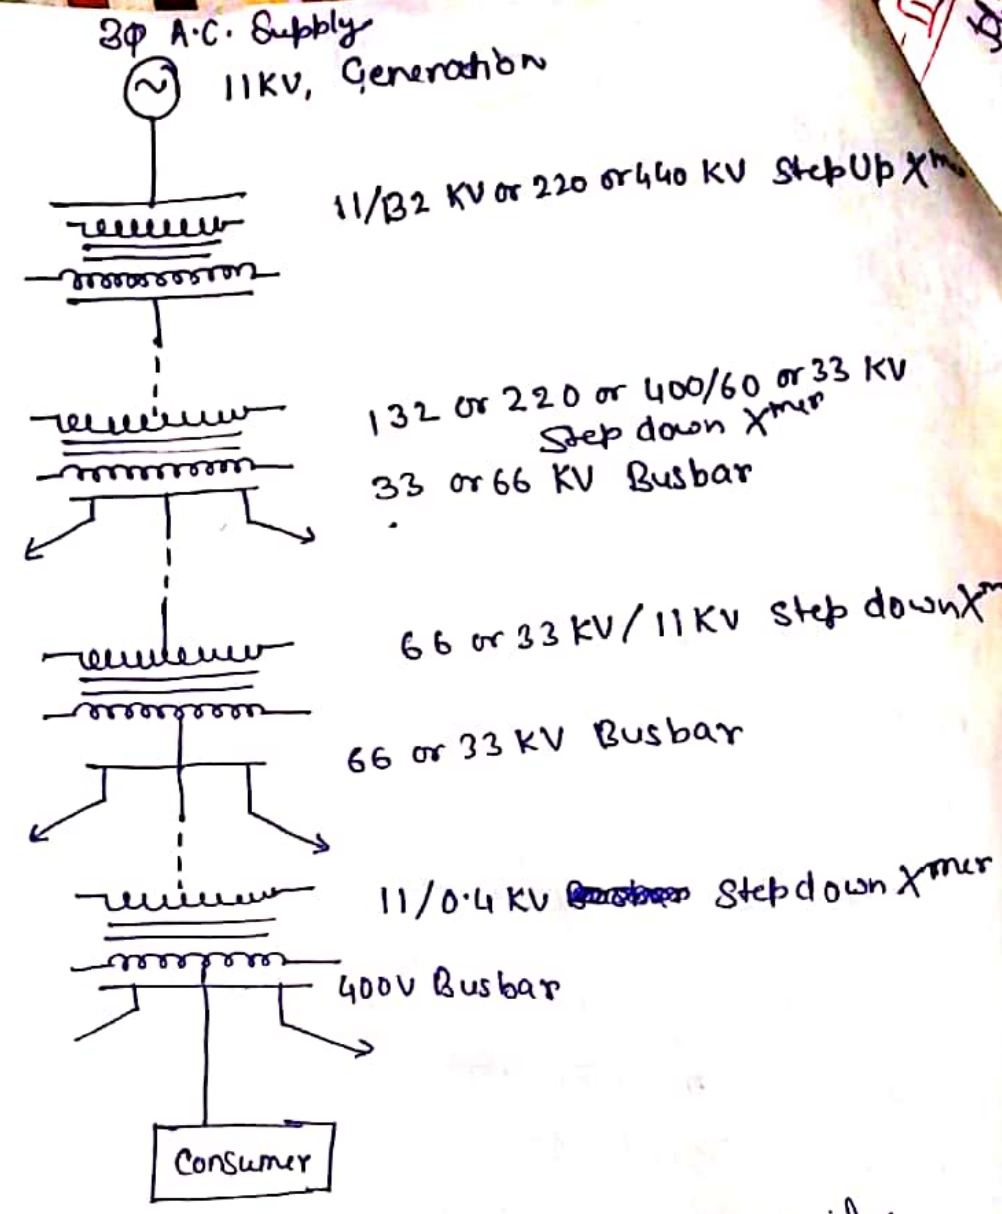 3φ A.C. Supply
11KV, Generation
11/132 KV or 220 or 440 KV Step Up Xm
132 or 220 or 400/60 or 33 KV
Step down Xmer
33 or 66 KV Busbar
66 or 33 KV / 11 KV Step down Xm
66 or 33 KV Busbar
11/0.4 KV Step down Xmer
400V Busbar
Consumer